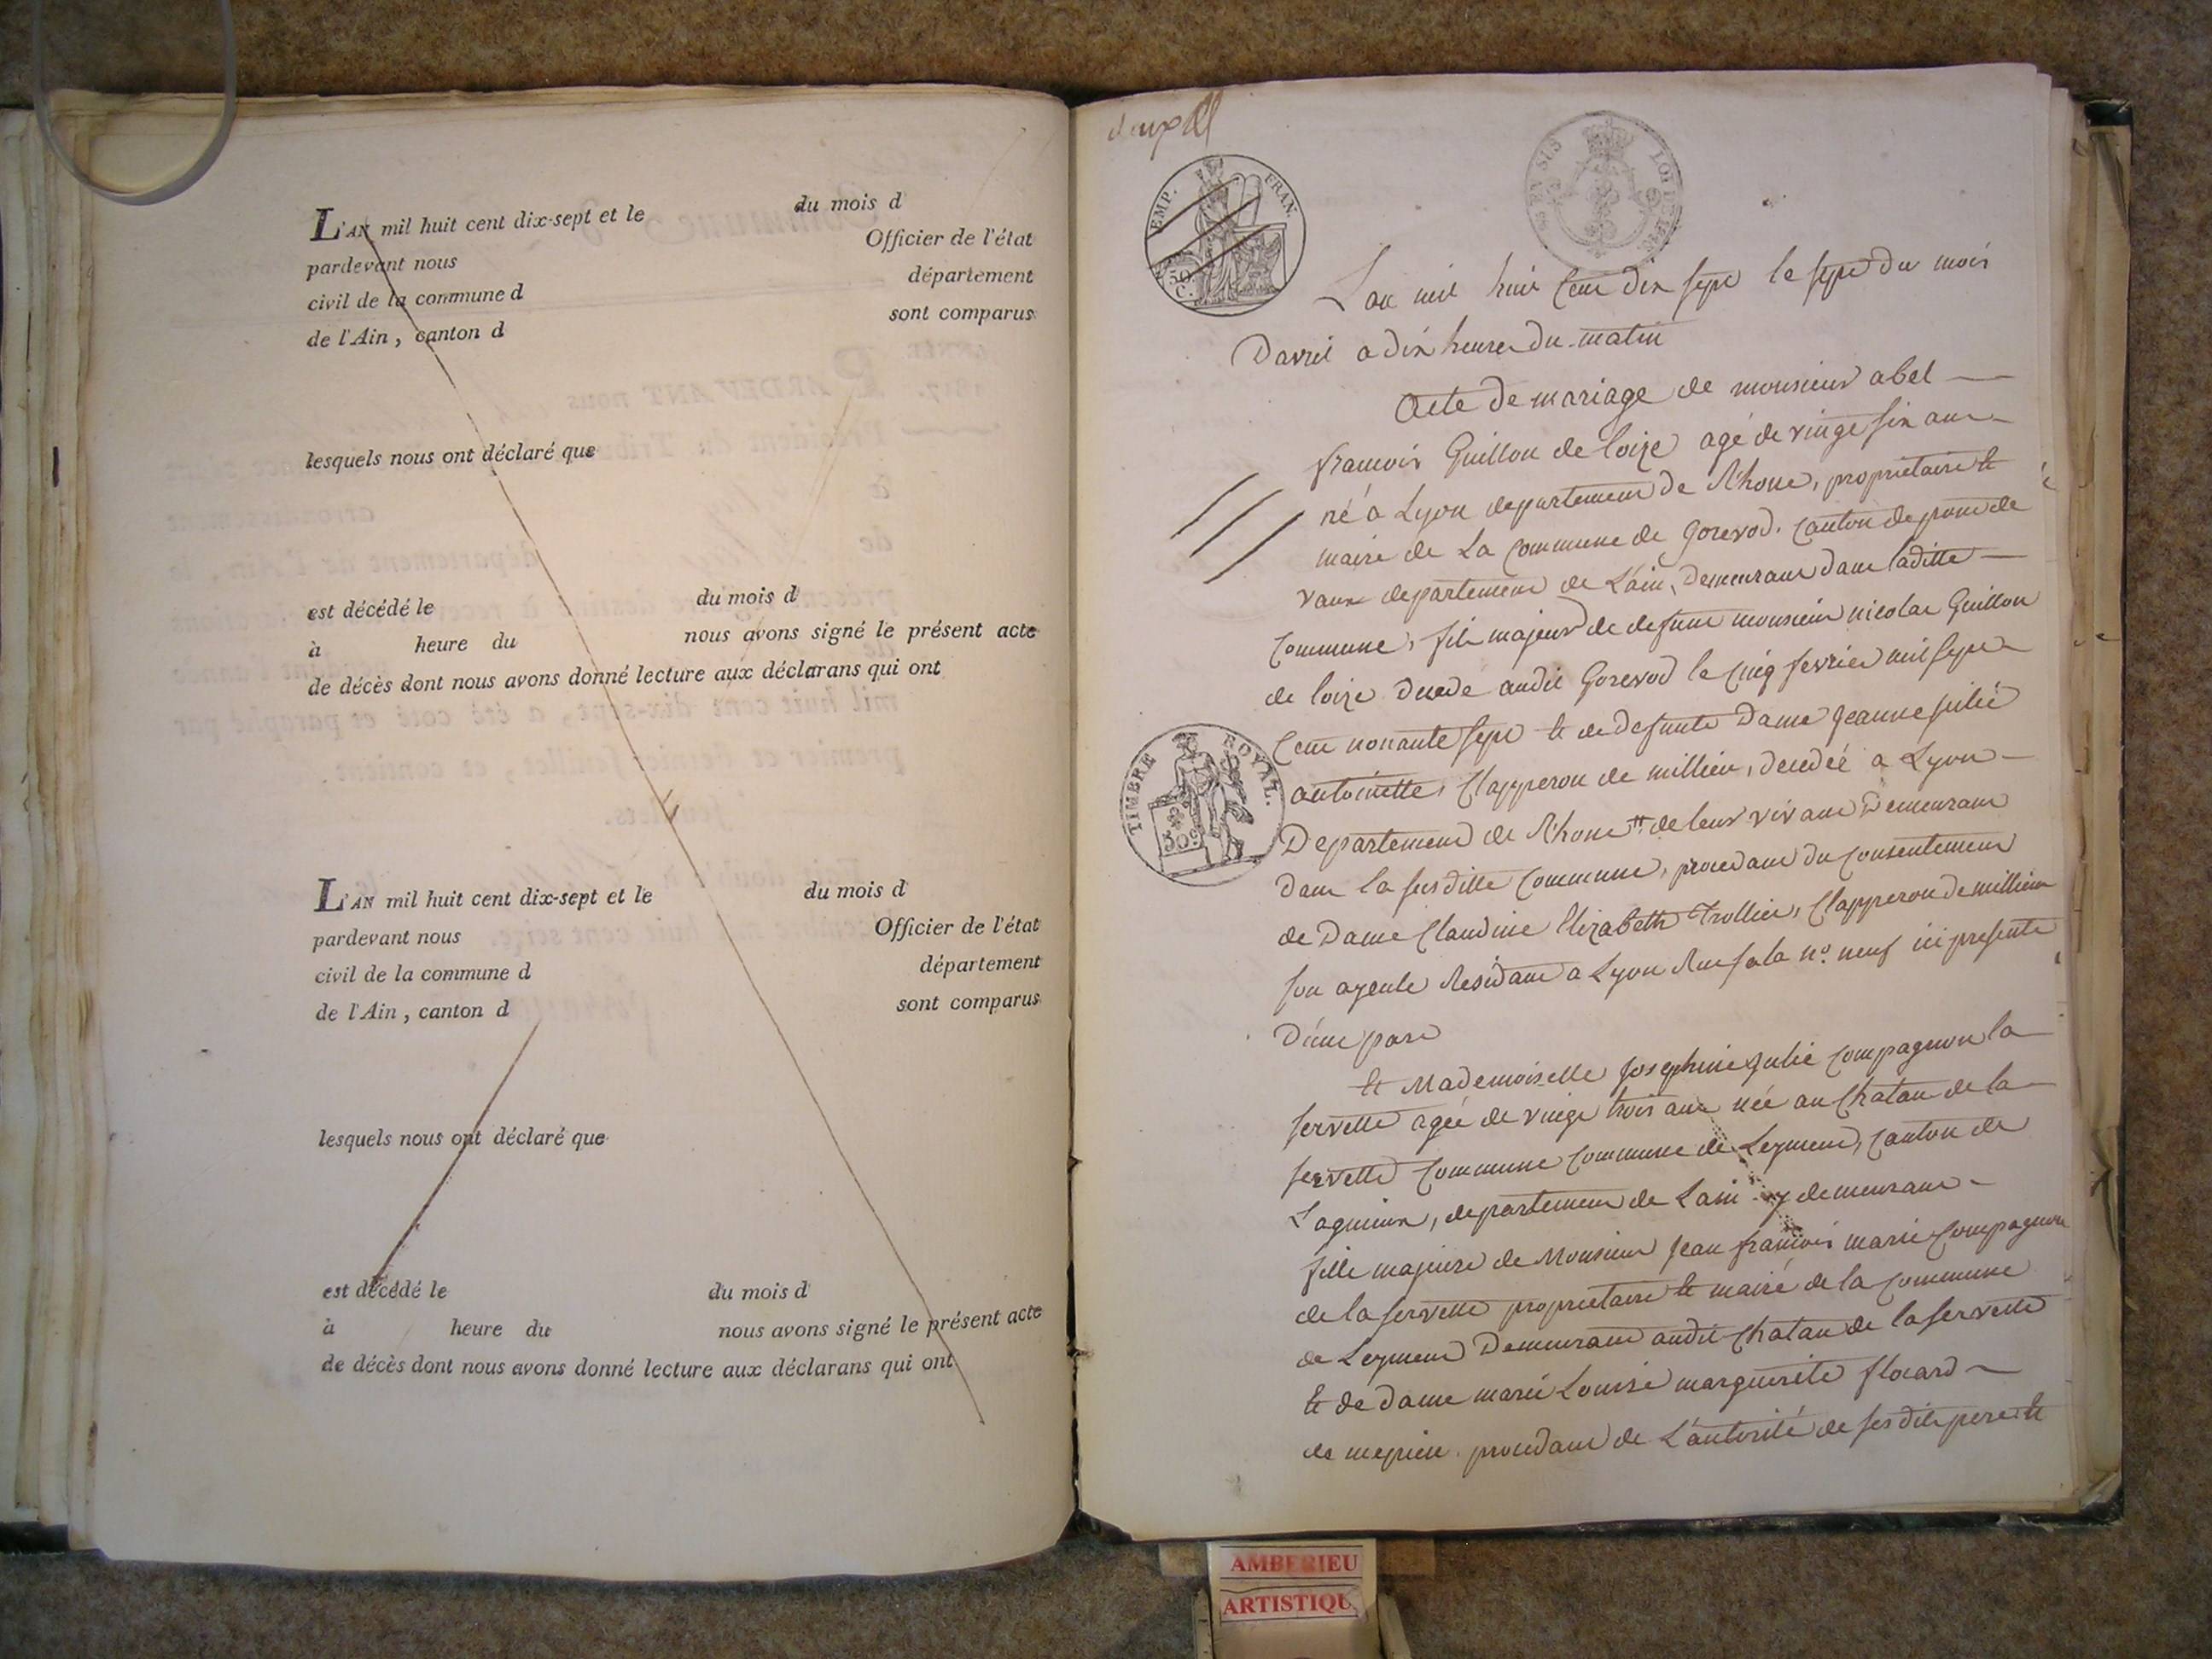 L'AN mil huit cent dix-sept et le du mois d
pardevant nous Officier de l'état
civil de la commune d département
de l'Ain, canton d sont comparus
lesquels nous ont déclaré que
est décédé le du mois d
à heure du nous avons signé le présent acte
de décès dont nous avons donné lecture aux déclarans qui ont
L'AN mil huit cent dix-sept et le du mois d
pardevant nous Officier de l'état
civil de la commune d département
de l'Ain, canton d sont comparus
lesquels nous ont déclaré que
est décédé le du mois d
à heure du nous avons signé le présent acte
de décès dont nous avons donné lecture aux déclarans qui ont
EMP. FRAN.
50 C.
L'an mil huit cent dix sept le sept du mois
D'avril a dix heures du matin
Acte de mariage de monsieur abel
francois Guillon de loize agé de vingt six ans
né a Lyon departement de Rhone, proprietaire et
maire de La Commune de Gorevod, Canton de pont de
vaux departement de L'ain, demeurant dans laditte
Commune, fils majeur de defunt monsieur nicolas Guillon
de loize decedé audit Gorevod le cinq fevrier mil sept
Cent nonante sept et de defunte Dame Jeanne julie
antoinette Clapperon de millieu, decedée a Lyon
Departement de Rhone de leur vivant Demeurant
dans la susditte Commune, procedant du Consentement
de Dame Claudine Elizabeth Trollier, Clapperon de millieu
son ayeule Residant a Lyon Rue sala n° neuf ici presente
D'une part
TIMBRE ROYAL.
50 c
et Mademoiselle Josephine Julie Compagnon la
servette agée de vingt trois ans née au Chatau de la
servette Commune Commune de Leyment, Canton de
Lagnieux, departement de Lain y demeurant
fille majeure de Monsieur Jean francois marie Compagnon
de la servette proprietaire et maire de la Commune
de Leyment Demeurant audit Chatau de la servette
et de Dame marie Louise marguerite flocard
de mepieu procedant de L'autorité de ses dits pere et
AMBERIEU
ARTISTIQU